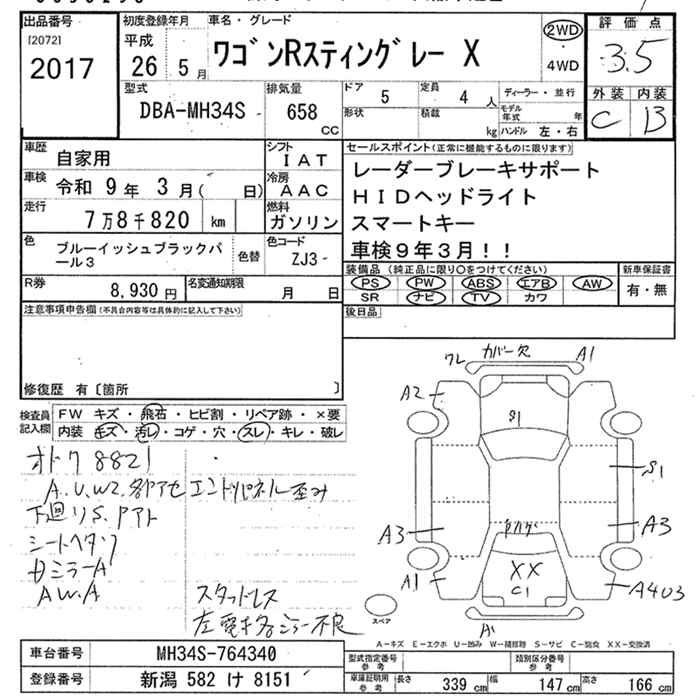 出品番号
[2072]
2017
初度登録年月
平成
26 年 5 月
車名・グレード
ワゴンRスティングレー X
2WD
・
4WD
評価点
3.5
外装 内装
C B
型式
DBA-MH34S
排気量
658
CC
ドア
5
定員
4 人
形状
積載
kg
ディーラー・並行
モデル年式 年
ハンドル 左・右
車歴
自家用
シフト
IAT
車検
令和 9 年 3 月( 日)
冷房
AAC
走行
7万8千820 km
燃料
ガソリン
色
ブルーイッシュブラックパール3
色替
色コード
ZJ3-
R券
8,930 円
名変通知期限
月 日
セールスポイント(正常に機能するものに限ります)
レーダーブレーキサポート
HIDヘッドライト
スマートキー
車検9年3月!!
装備品(純正品に限り○をつけてください)
PS PW ABS エアB AW
SR ナビ TV カワ
新車保証書
有・無
後日品
注意事項申告欄(不具合内容等は具体的に記入して下さい)
修復歴 有〔箇所 〕
検査員記入欄
FW キズ・飛石・ヒビ割・リペア跡・×要
内装 キズ・汚レ・コゲ・穴・スレ・キレ・破レ
オドク 8821
A.U.W2.各アセ エンドパネル歪み
下廻りS.アアト
シートヘタリ
ミラーA
AW.A
スタッドレス
左電ミラー不良
ワレ カバー欠 A1
A2
S1
S1
A3 A3
A1
XX
C1
A403
A1
スペア
A-キズ E-エクボ U-凹み W-補修跡 S-サビ C-腐食 XX-交換済
車台番号
MH34S-764340
登録番号
新潟 582 け 8151
型式指定番号
参考
類別区分番号
参考
車庫証明用
参考
長さ 339 cm 幅 147 cm 高さ 166 cm